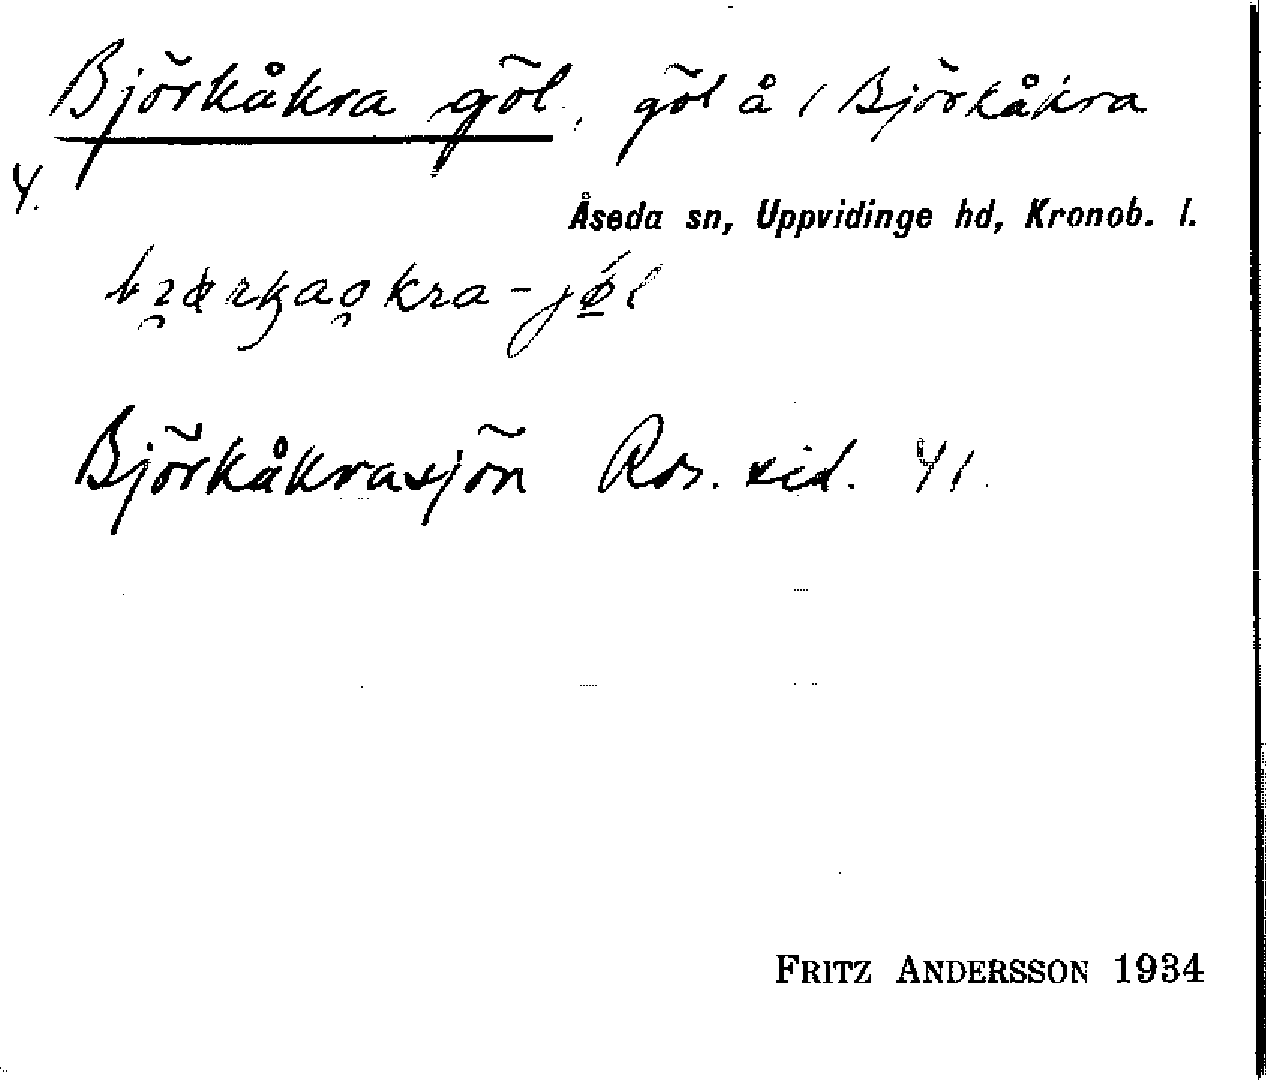 Björkåkra göl, göl å / Björkåkra
4.
Åseda sn, Uppvidinge hd, Kronob. l.
Björkåkrasjön Ros. sid. 41.
FRITZ ANDERSSON 1934